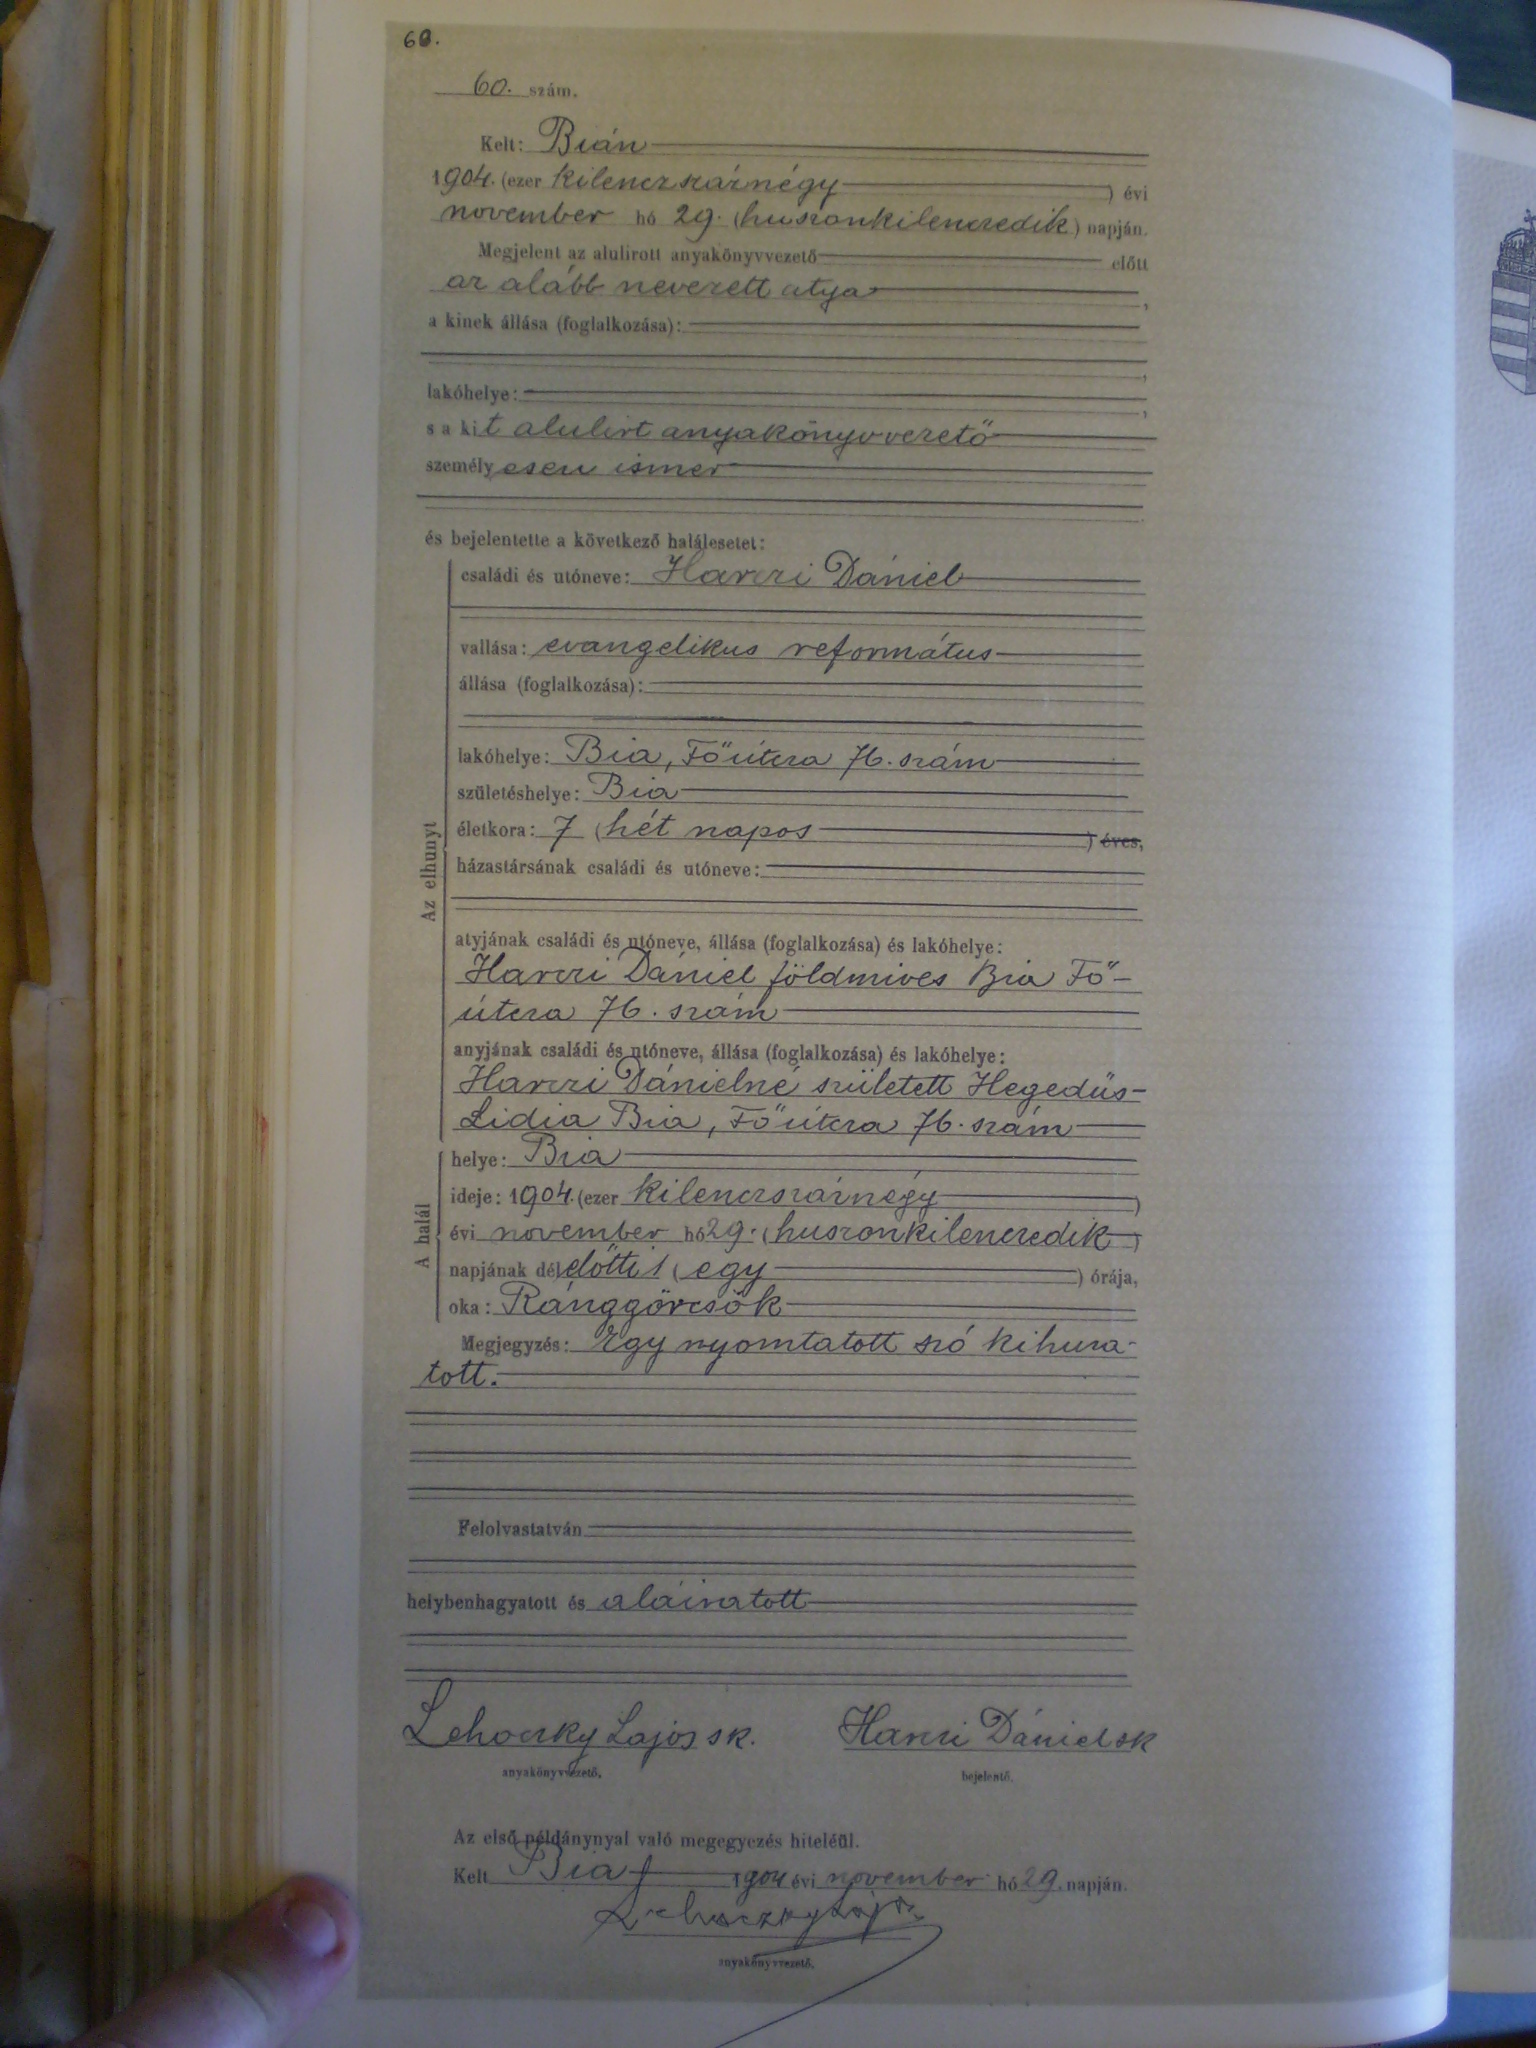 60.
60. szám.
Kelt: Bián
1904. (ezer kilenczszáznégy) évi
november hó 29. (huszonkilenczedik) napján.
Megjelent az alulirott anyakönyvvezető előtt
az alább nevezett atya,
a kinek állása (foglalkozása):
,
lakóhelye: ,
s a kit alulirt anyakönyvvezető
személyesen ismer
és bejelentette a következő halálesetet:
Az elhunyt
családi és utóneve: Harczi Dániel
vallása: evangelikus református
állása (foglalkozása):
lakóhelye: Bia, Főútcza 76. szám
születéshelye: Bia
életkora: 7 (hét napos) éves,
házastársának családi és utóneve:
atyjának családi és utóneve, állása (foglalkozása) és lakóhelye:
Harczi Dániel földmives Bia Fő-
útcza 76. szám
anyjának családi és utóneve, állása (foglalkozása) és lakóhelye:
Harczi Dánielné született Hegedüs
Lidia Bia, Főútcza 76. szám
A halál
helye: Bia
ideje: 1904. (ezer kilenczszáznégy)
évi november hó 29. (huszonkilenczedik)
napjának délelőtti 1 (egy) órája,
oka: Ránggörcsök
Megjegyzés: Egy nyomtatott szó kihuza-
tott.
Felolvastatván
helybenhagyatott és aláiratott
Lehoczky Lajos sk. Harczi Dániel sk
anyakönyvvezető. bejelentő.
Az első példánynyal való megegyezés hiteléül.
Kelt Bia 1904 évi november hó 29. napján.
Lehoczky Lajos
anyakönyvvezető.